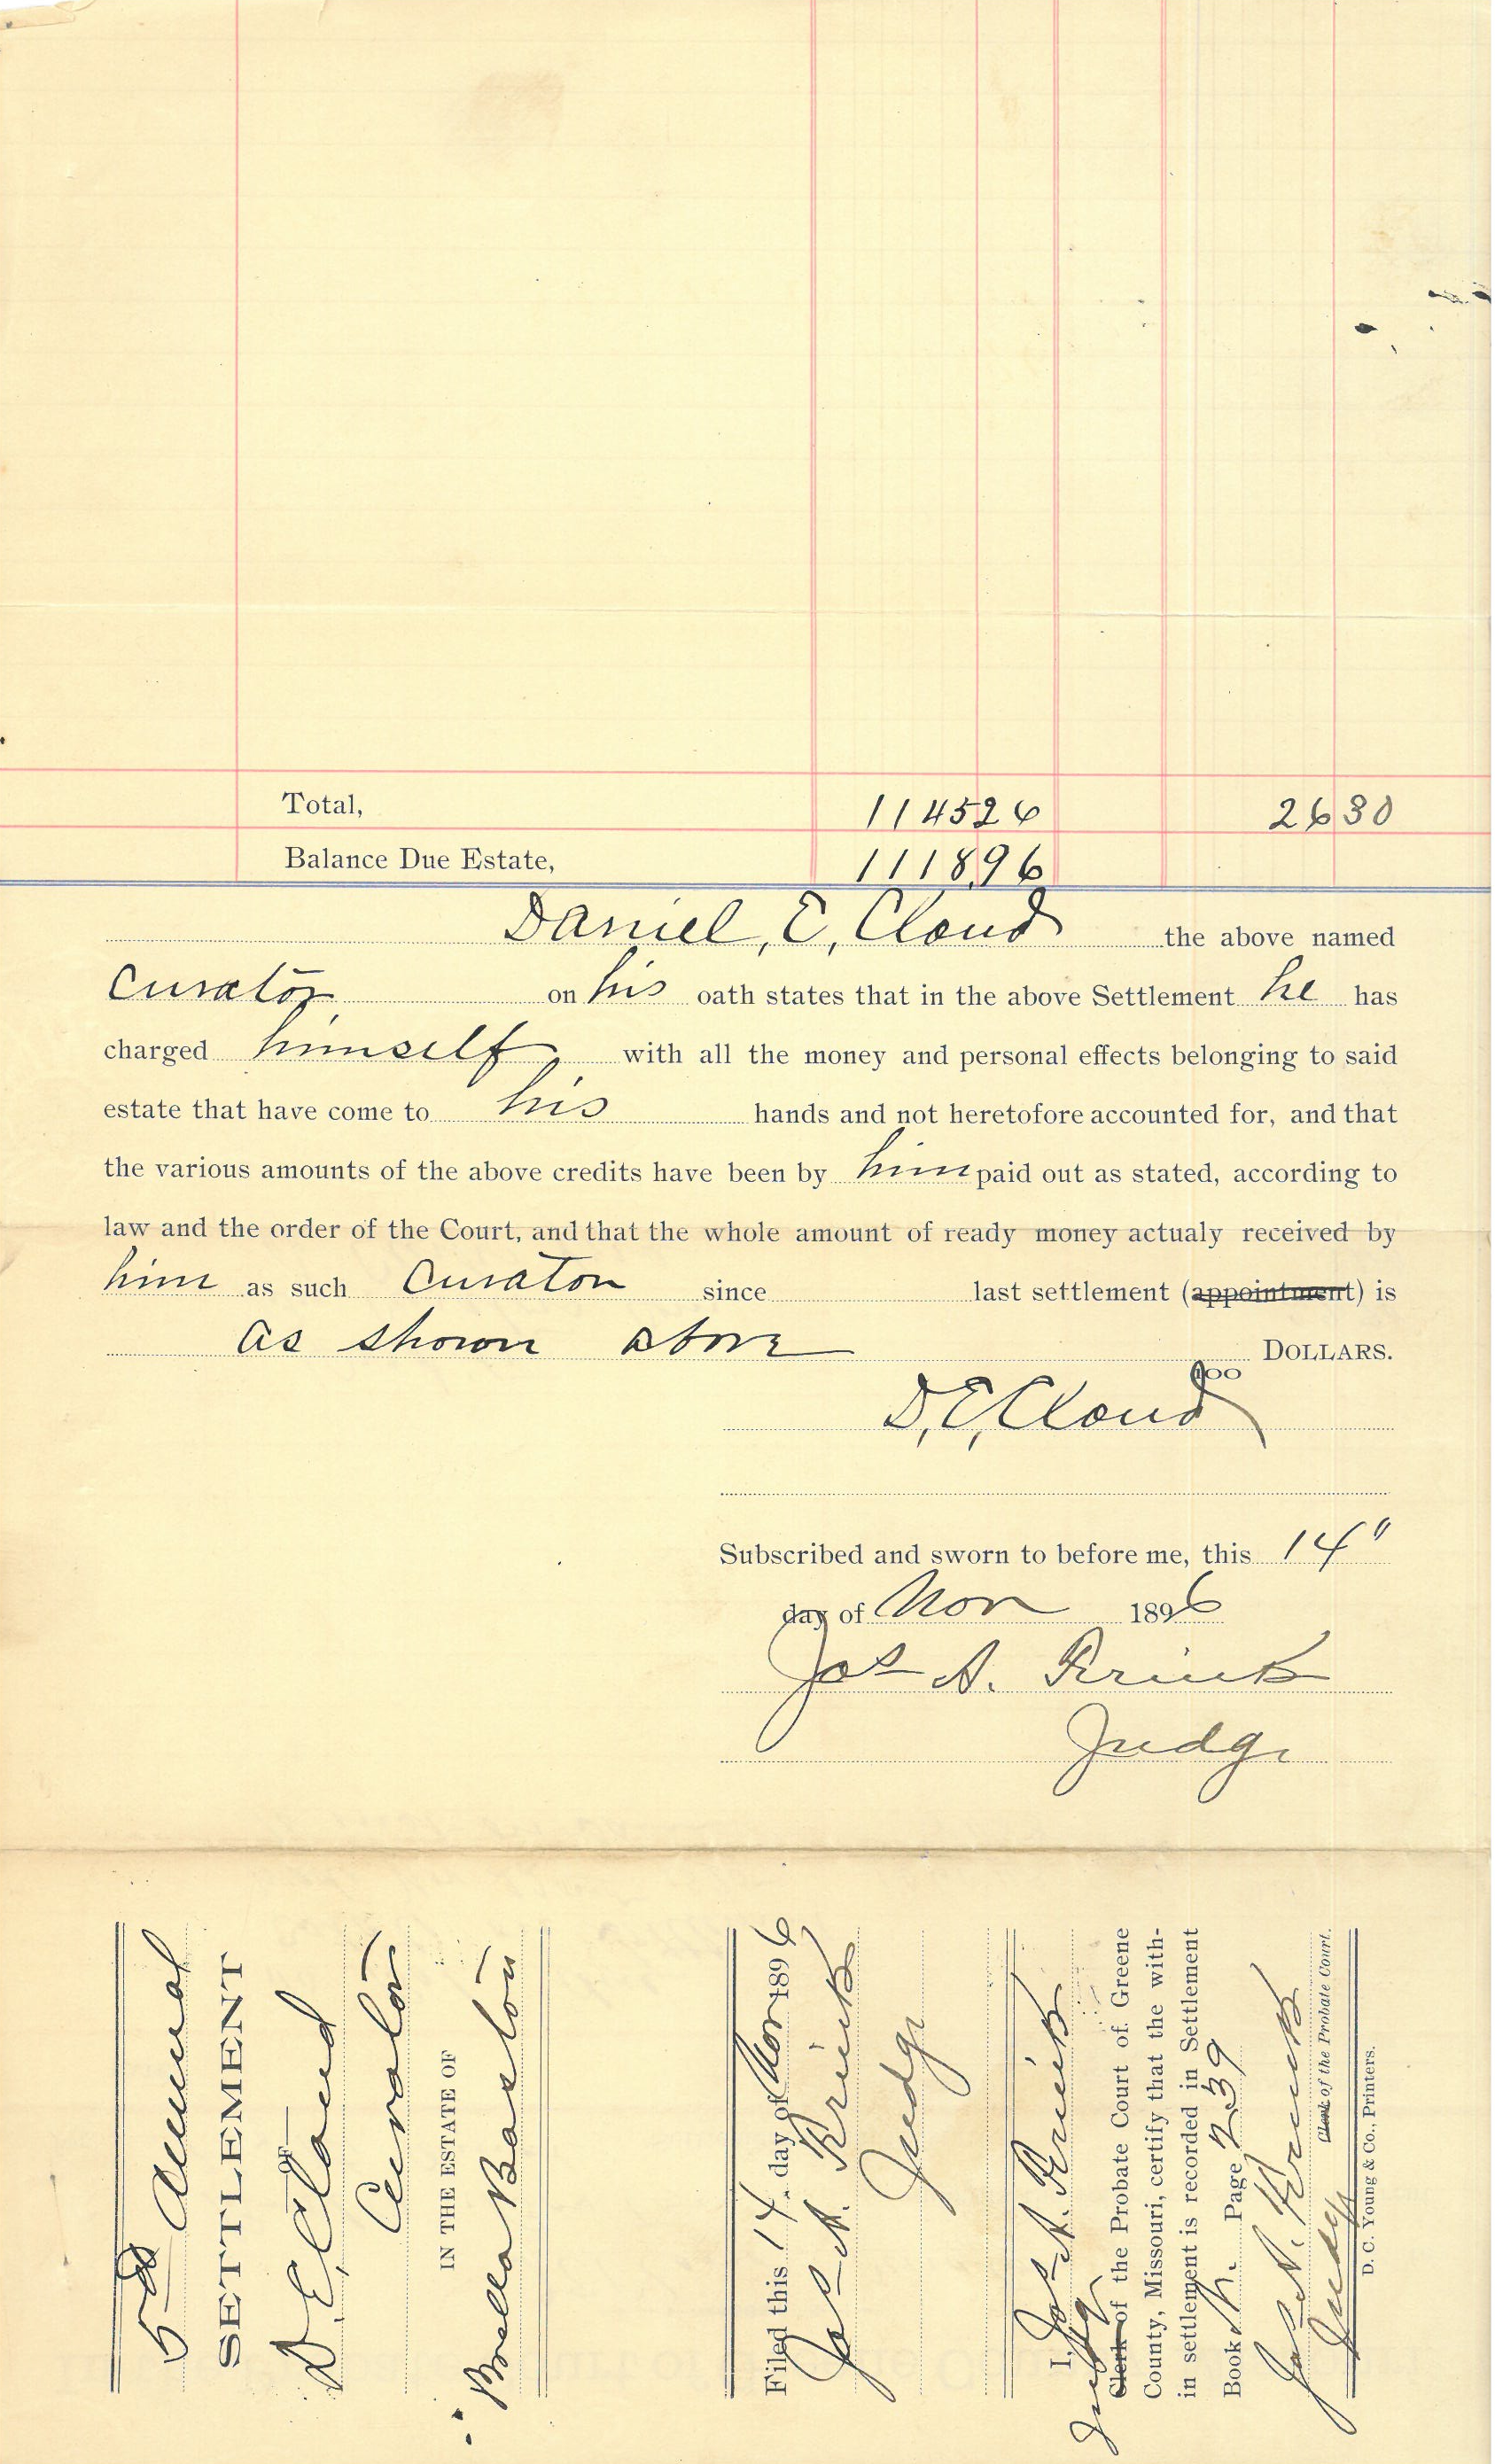 Total, 1145 26 26 30
Balance Due Estate, 1118.96
Daniel, E, Cloud the above named
Curator on his oath states that in the above Settlement he has
charged himself with all the money and personal effects belonging to said
estate that have come to his hands and not heretofore accounted for, and that
the various amounts of the above credits have been by him paid out as stated, according to
law and the order of the Court, and that the whole amount of ready money actualy received by
him as such Curator since last settlement (appointment) is
as shown above DOLLARS.
100
D, E, Cloud
Subscribed and sworn to before me, this 14"
day of Nov 1896
Jos A.
Judge
5th Annual
SETTLEMENT
OF
D. E. Cloud
Curator
IN THE ESTATE OF
Baston
Filed this 14 day of Nov 1896
Jos A.
Judge
I, Jos A.
Judge
Clerk of the Probate Court of Greene
County, Missouri, certify that the with-
in settlement is recorded in Settlement
Book Page 239
Jos A.
Clerk of the Probate Court.
Judge
D. C. Young & Co., Printers.